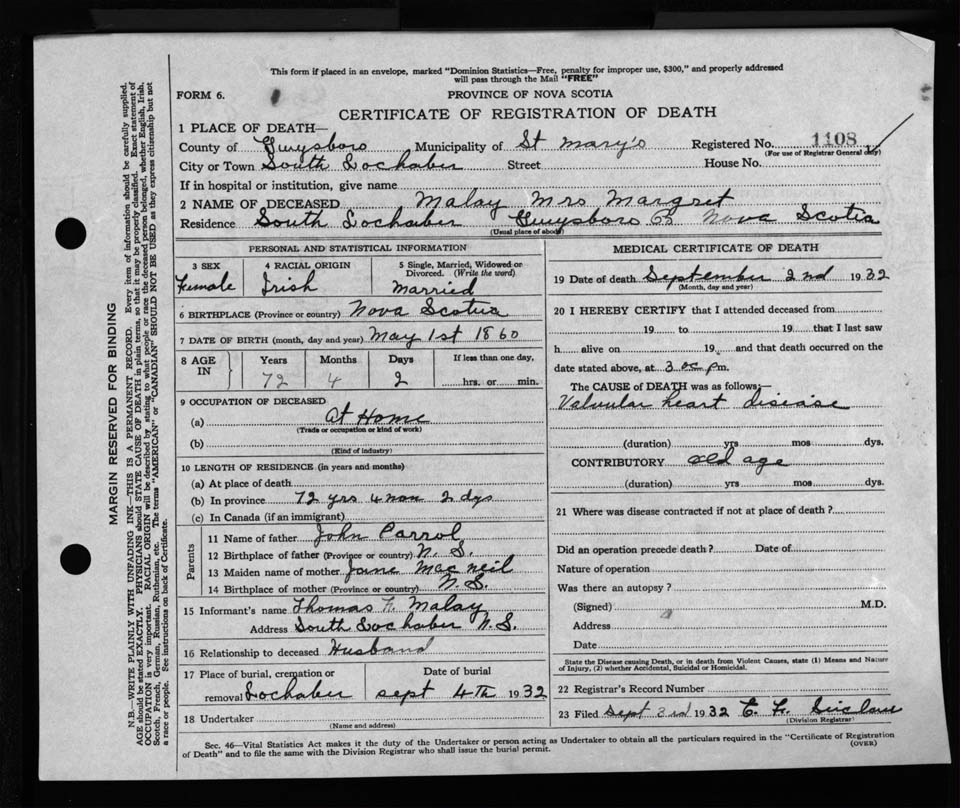 This form if placed in an envelope, marked "Dominion Statistics—Free, penalty for improper use, $300," and properly addressed
will pass through the Mail "FREE"
FORM 6.
PROVINCE OF NOVA SCOTIA
CERTIFICATE OF REGISTRATION OF DEATH
1 PLACE OF DEATH—
County of Guysboro Municipality of St Mary's Registered No. 1108
(For use of Registrar General only)
City or Town South Lochaber Street House No.
If in hospital or institution, give name
2 NAME OF DECEASED Malay Mrs Margret
Residence South Lochaber Guysboro Nova Scotia
(Usual place of abode)
PERSONAL AND STATISTICAL INFORMATION
3 SEX
Female
4 RACIAL ORIGIN
Irish
5 Single, Married, Widowed or
Divorced. (Write the word)
Married
6 BIRTHPLACE (Province or country) Nova Scotia
7 DATE OF BIRTH (month, day and year) May 1st 1860
8 AGE
IN
Years Months Days If less than one day,
72 4 2 hrs. or min.
9 OCCUPATION OF DECEASED
(a) At Home
(Trade or occupation or kind of work)
(b)
(Kind of industry)
10 LENGTH OF RESIDENCE (in years and months)
(a) At place of death
(b) In province 72 yrs 4 mon 2 dys
(c) In Canada (if an immigrant)
Parents
11 Name of father John Carrol
12 Birthplace of father (Province or country) N. S.
13 Maiden name of mother Jane Mac neil
14 Birthplace of mother (Province or country) N. S.
15 Informant's name Thomas F. Malay
Address South Lochaber N. S.
16 Relationship to deceased Husband
17 Place of burial, cremation or
removal Lochaber
Date of burial
sept 4th 1932
18 Undertaker
(Name and address)
MEDICAL CERTIFICATE OF DEATH
19 Date of death September 2nd 1932
(Month, day and year)
20 I HEREBY CERTIFY that I attended deceased from
19 to 19 that I last saw
h alive on 19, and that death occurred on the
date stated above, at 3 oc pm.
The CAUSE of DEATH was as follows;—
Valvular heart disease
(duration) yrs mos dys.
CONTRIBUTORY old age
(duration) yrs mos dys.
21 Where was disease contracted if not at place of death?
Did an operation precede death? Date of
Nature of operation
Was there an autopsy?
(Signed) M.D.
Address
Date
State the Disease causing Death, or in death from Violent Causes, state (1) Means and Nature
of Injury, (2) whether Accidental, Suicidal or Homicidal.
22 Registrar's Record Number
23 Filed Sept 3rd 1932 C. F. Sinclair
(Division Registrar)
Sec. 46—Vital Statistics Act makes it the duty of the Undertaker or person acting as Undertaker to obtain all the particulars required in the "Certificate of Registration
of Death" and to file the same with the Division Registrar who shall issue the burial permit.
(OVER)
MARGIN RESERVED FOR BINDING
N.B.—WRITE PLAINLY WITH UNFADING INK—THIS IS A PERMANENT RECORD. Every item of information should be carefully supplied.
AGE should be stated EXACTLY. PHYSICIANS should STATE CAUSE OF DEATH in plain terms, so that it may be properly classified. Exact statement of
OCCUPATION is very important. RACIAL ORIGIN will be described by stating to what people or race the deceased person belonged, whether English, Irish,
Scotch, French, German, Russian, Ruthenian, etc. The terms "AMERICAN" or "CANADIAN" SHOULD NOT BE USED as they express citizenship but not
a race or people. See instructions on back of Certificate.